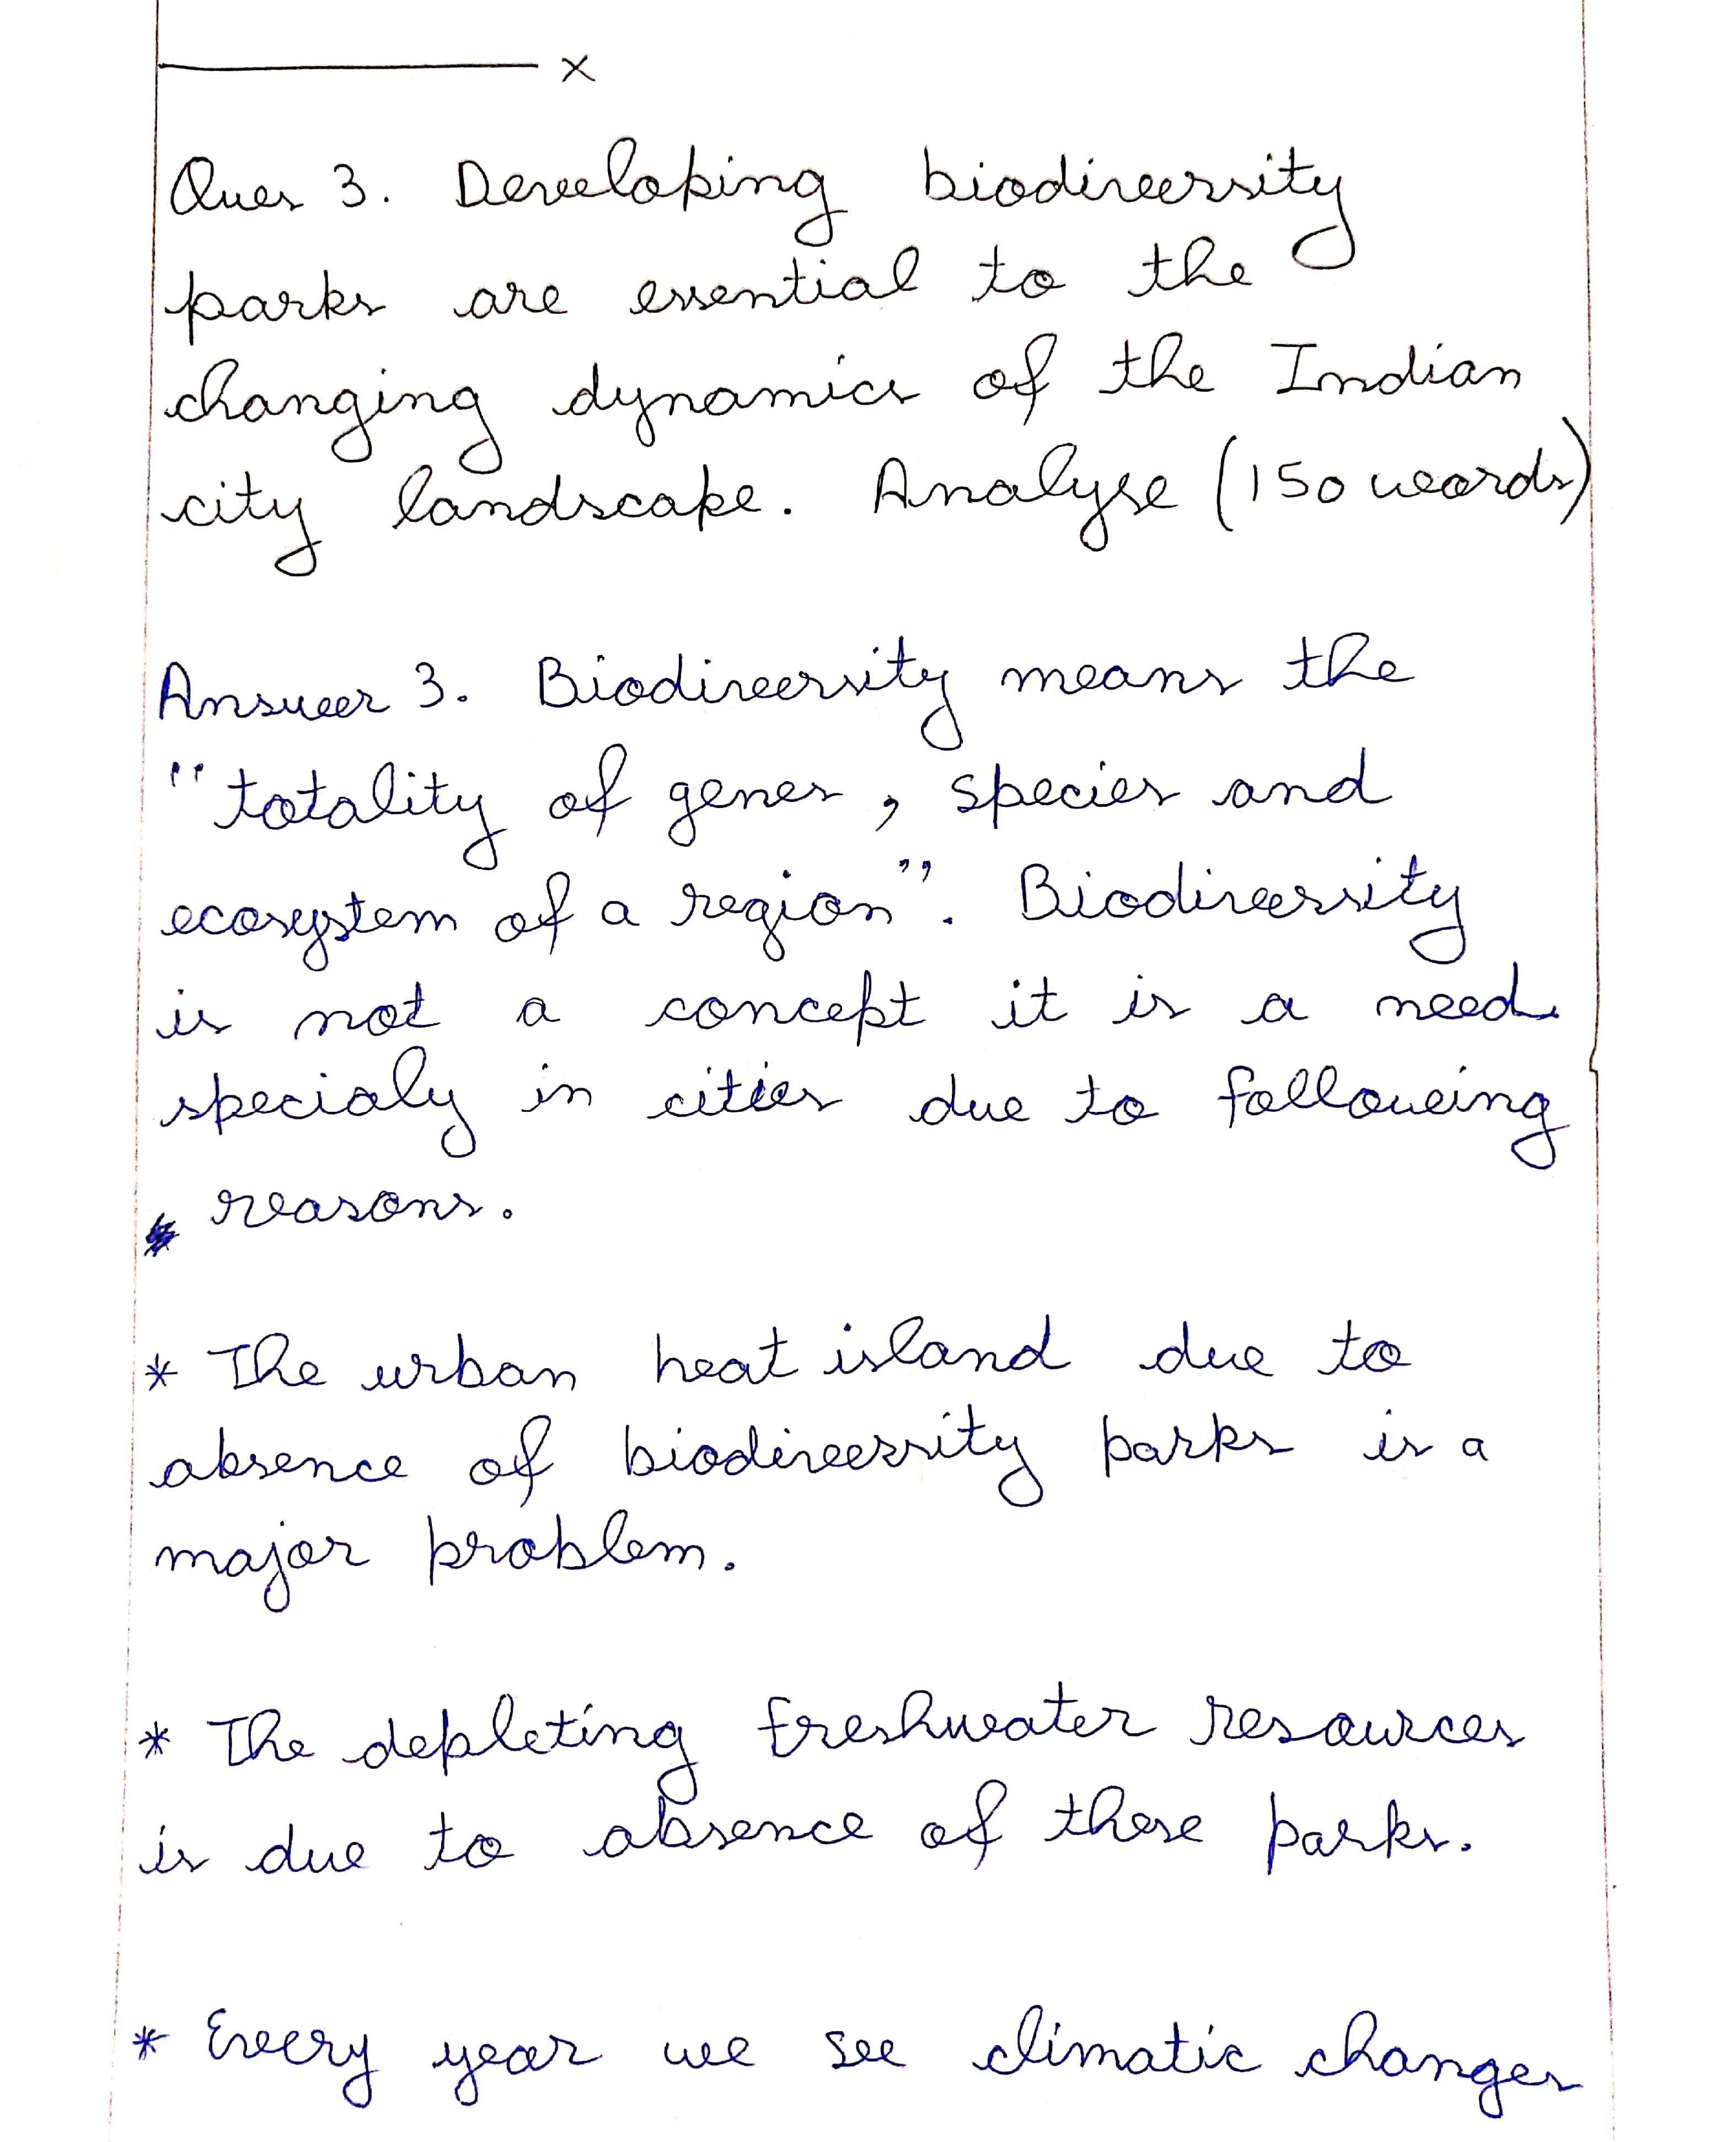 x
Ques 3. Developing biodiversity
parks are essential to the
changing dynamics of the Indian
city landscape. Analyse (150 words)
Answer 3. Biodiversity means the
"totality of genes, species and
ecosystem of a region". Biodiversity
is not a concept it is a need
specialy in cities due to following
reasons.
* The urban heat island due to
absence of biodiversity parks is a
major problem.
* The depleting freshwater resources
is due to absence of these parks.
* Every year we see climatic changes